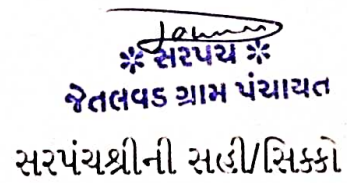 * સરપંચ *
જેતલવડ ગ્રામ પંચાયત
સરપંચશ્રીની સહી/સિક્કો